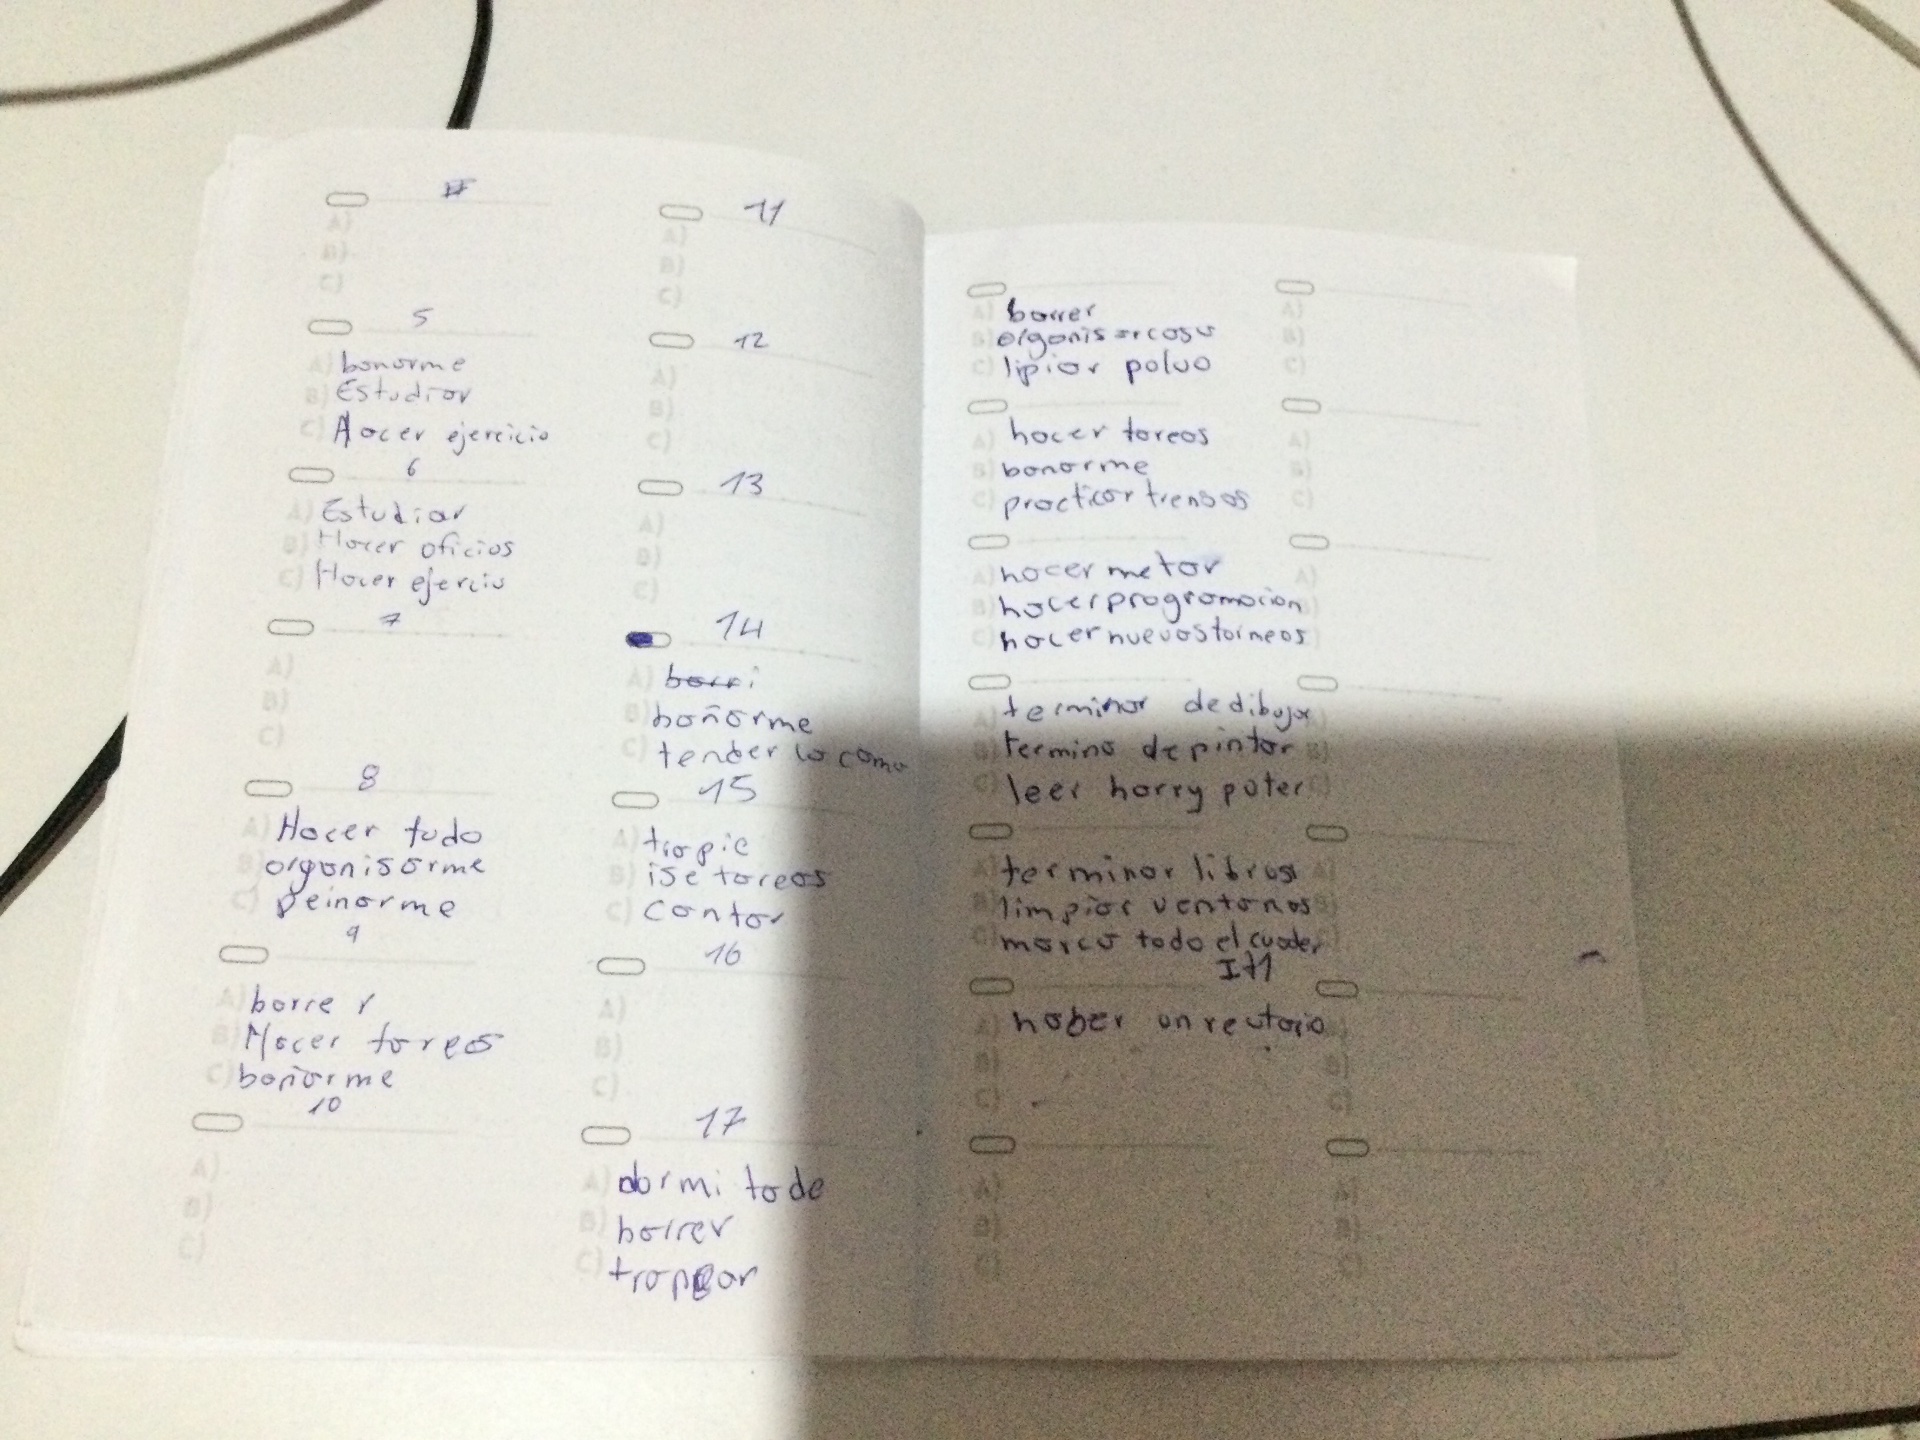 A)
B)
C)
5
A) bañarme
B) Estudiar
C) Hacer ejercicio
6
A) Estudiar
B) Hacer oficios
C) Hacer ejercio
7
A)
B)
C)
8
A) Hacer tudo
B) organisarme
C) peinarme
9
A) barre r
B) Hacer tareas
C) bañarme
10
A)
B)
C)
11
A)
B)
C)
12
A)
B)
C)
13
A)
B)
C)
14
A) barri
B) bañarme
C) tender la cama
15
A) trapie
B) ise tareas
C) Cantar
16
A)
B)
C)
17
A) dormi tode
B) barrer
C) trapear
A) barrer
B) organisar casa
C) lipiar polvo
A) hacer tareas
B) banarme
C) practicar trensas
A) hacer metor
B) hacer programacion
C) hacer nuevos torneos
A) terminar de dibujar
B) termina de pintar
C) leer harry poter
A) terminar libros
B) limpiar ventanas
C) marca todo el cuader
A) haber un
B)
C)
A)
B)
C)
A)
B)
C)
A)
B)
C)
A)
B)
C)
A)
B)
C)
A)
B)
C)
A)
B)
C)
A)
B)
C)